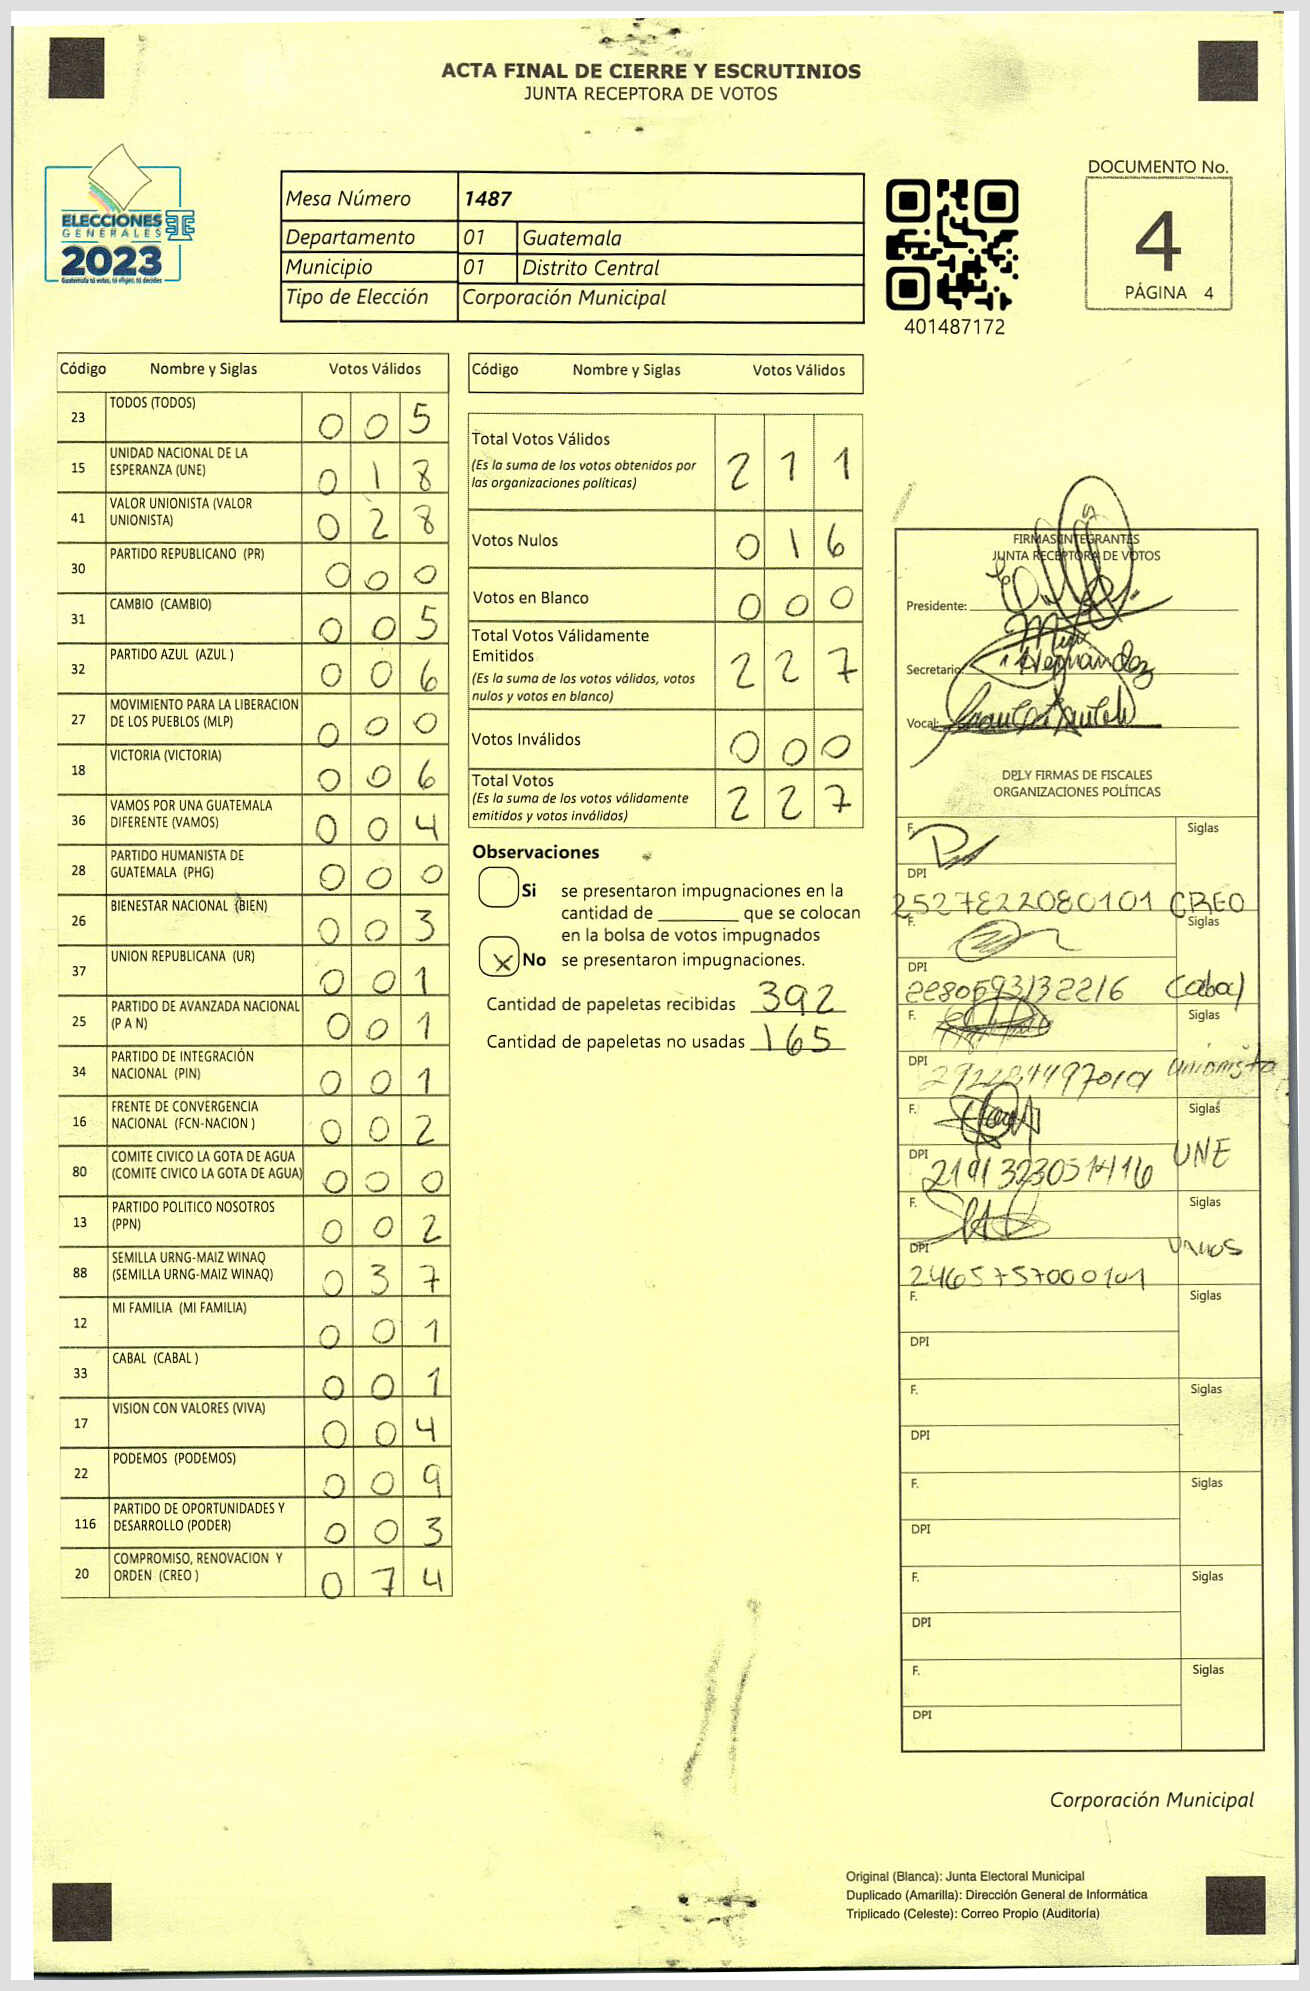 ACTA FINAL DE CIERRE Y ESCRUTINIOS
JUNTA RECEPTORA DE VOTOS
ELECCIONES
GENERALES
2023
Guatemala tú votas, tú eliges, tú decides
Mesa Número 1487
Departamento 01 Guatemala
Municipio 01 Distrito Central
Tipo de Elección Corporación Municipal
401487172
DOCUMENTO No.
4
PÁGINA 4
Código Nombre y Siglas Votos Válidos
23 TODOS (TODOS) 0 0 5
15 UNIDAD NACIONAL DE LA ESPERANZA (UNE) 0 1 8
41 VALOR UNIONISTA (VALOR UNIONISTA) 0 2 8
30 PARTIDO REPUBLICANO (PR) 0 0 0
31 CAMBIO (CAMBIO) 0 0 5
32 PARTIDO AZUL (AZUL ) 0 0 6
27 MOVIMIENTO PARA LA LIBERACION DE LOS PUEBLOS (MLP) 0 0 0
18 VICTORIA (VICTORIA) 0 0 6
36 VAMOS POR UNA GUATEMALA DIFERENTE (VAMOS) 0 0 4
28 PARTIDO HUMANISTA DE GUATEMALA (PHG) 0 0 0
26 BIENESTAR NACIONAL (BIEN) 0 0 3
37 UNION REPUBLICANA (UR) 0 0 1
25 PARTIDO DE AVANZADA NACIONAL (P A N) 0 0 1
34 PARTIDO DE INTEGRACIÓN NACIONAL (PIN) 0 0 1
16 FRENTE DE CONVERGENCIA NACIONAL (FCN-NACION ) 0 0 2
80 COMITE CIVICO LA GOTA DE AGUA (COMITE CIVICO LA GOTA DE AGUA) 0 0 0
13 PARTIDO POLITICO NOSOTROS (PPN) 0 0 2
88 SEMILLA URNG-MAIZ WINAQ (SEMILLA URNG-MAIZ WINAQ) 0 3 7
12 MI FAMILIA (MI FAMILIA) 0 0 1
33 CABAL (CABAL ) 0 0 1
17 VISION CON VALORES (VIVA) 0 0 4
22 PODEMOS (PODEMOS) 0 0 9
116 PARTIDO DE OPORTUNIDADES Y DESARROLLO (PODER) 0 0 3
20 COMPROMISO, RENOVACION Y ORDEN (CREO ) 0 7 4
Código Nombre y Siglas Votos Válidos
Total Votos Válidos 2 1 1
(Es la suma de los votos obtenidos por
las organizaciones políticas)
Votos Nulos 0 1 6
Votos en Blanco 0 0 0
Total Votos Válidamente
Emitidos 2 2 7
(Es la suma de los votos válidos, votos
nulos y votos en blanco)
Votos Inválidos 0 0 0
Total Votos 2 2 7
(Es la suma de los votos válidamente
emitidos y votos inválidos)
Observaciones
Si se presentaron impugnaciones en la
cantidad de ________ que se colocan
en la bolsa de votos impugnados
X No se presentaron impugnaciones.
Cantidad de papeletas recibidas 392
Cantidad de papeletas no usadas 165
FIRMAS INTEGRANTES
JUNTA RECEPTORA DE VOTOS
Presidente:
Secretario: Hernández
Vocal:
DPI Y FIRMAS DE FISCALES
ORGANIZACIONES POLÍTICAS
F. Siglas
DPI
2527822080101 CREO
F. Siglas
DPI
Cabal
F. Siglas
DPI
Unionista
F. Siglas
DPI
UNE
F. Siglas
DPI
2465757000101 VAMOS
F. Siglas
DPI
F. Siglas
DPI
F. Siglas
DPI
F. Siglas
DPI
F. Siglas
DPI
Corporación Municipal
Original (Blanca): Junta Electoral Municipal
Duplicado (Amarilla): Dirección General de Informática
Triplicado (Celeste): Correo Propio (Auditoría)